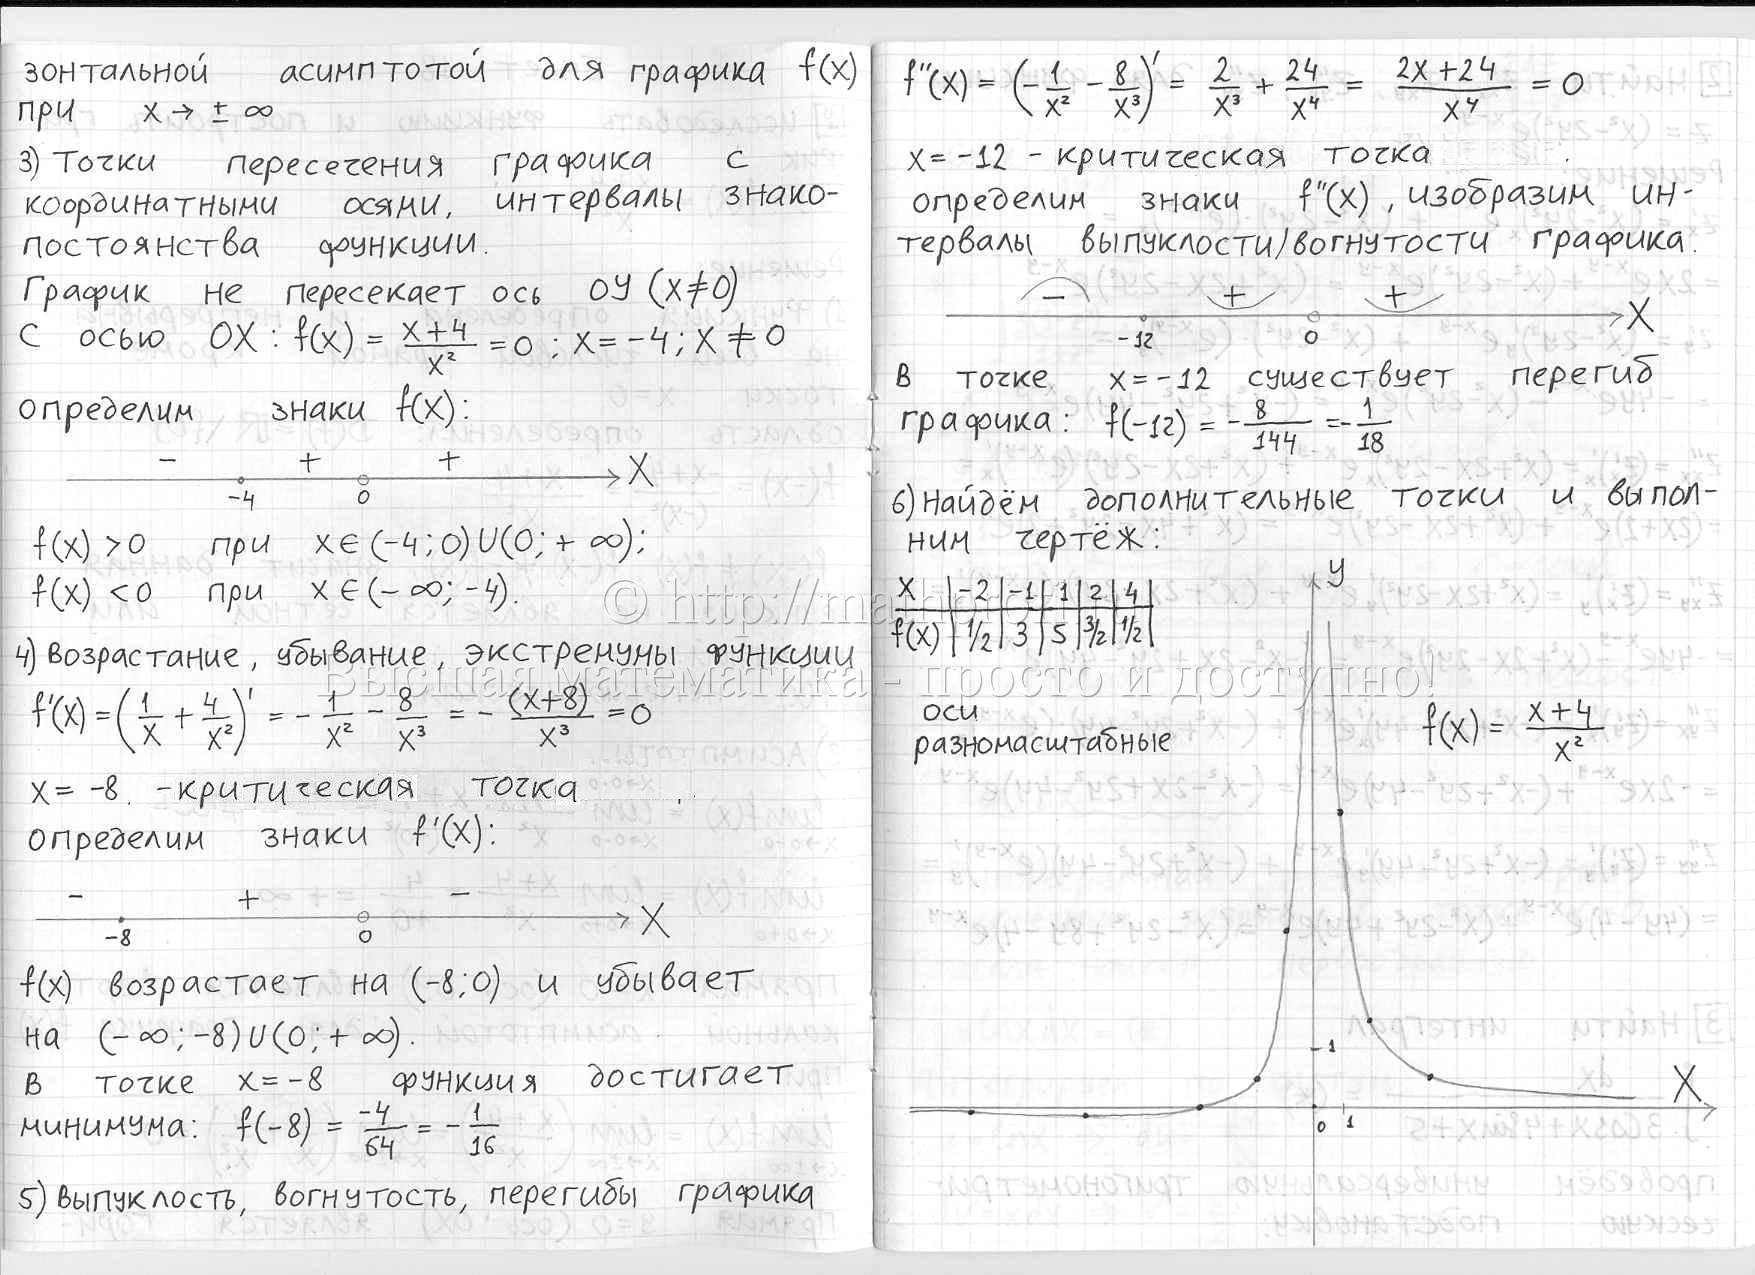 зонтальной асимптотой для графика f(x)
при x → ± ∞
3) Точки пересечения графика с
координатными осями, интервалы знако-
постоянства функции.
График не пересекает ось OY (x≠0)
С осью OX : f(x) = (x+4)/x² = 0 ; x = -4; x ≠ 0
определим знаки f(x):
− + + X
-4 0
f(x) > 0 при x ∈ (-4; 0) U (0; + ∞);
f(x) < 0 при x ∈ (- ∞; -4).
4) Возрастание, убывание, экстремумы функции
f'(x) = (1/x + 4/x²)' = - 1/x² - 8/x³ = - (x+8)/x³ = 0
x = -8. - критическая точка
определим знаки f'(x):
− + − X
-8 0
f(x) возрастает на (-8; 0) и убывает
на (- ∞; -8) U (0; + ∞).
В точке x = -8 функция достигает
минимума: f(-8) = -4/64 = - 1/16
5) Выпуклость, вогнутость, перегибы графика
f''(x) = (- 1/x² - 8/x³)' = 2/x³ + 24/x⁴ = (2x+24)/x⁴ = 0
x = -12 - критическая точка
определим знаки f''(x), изобразим ин-
тервалы выпуклости/вогнутости графика.
− + + X
-12 0
В точке x = -12 существует перегиб
графика: f(-12) = - 8/144 = - 1/18
6) Найдём дополнительные точки и выпол-
ним чертёж:
x | -2 | -1 | 1 | 2 | 4
f(x) | 1/2 | 3 | 5 | 3/2 | 1/2
оси
разномасштабные
f(x) = (x+4)/x²
y
1
X
0 1
Высшая математика - просто и доступно!